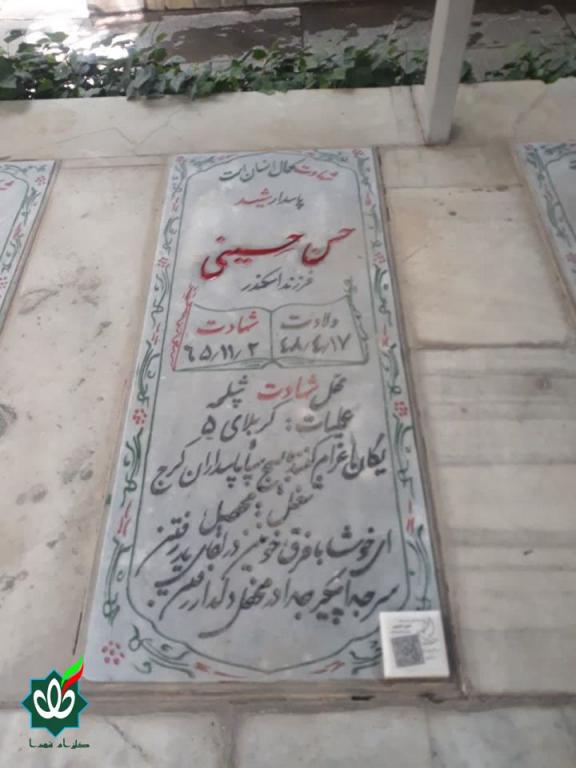 شهادت کمال انسان است
پاسدار رشید
حسن حسینی
فرزند اسکندر
ولادت
۴۸/۴/۱۷
شهادت
۶۵/۱۱/۲
محل شهادت شلمچه
عملیات: کربلای ۵
یگان اعزام کننده بسیج سپاه پاسداران کرج
شغل: محصل
ای خوشا با فرق خونین در لقای یار رفتن
سر جدا پیکر جدا در محفل دلدار رفتن
گلزار شهدا